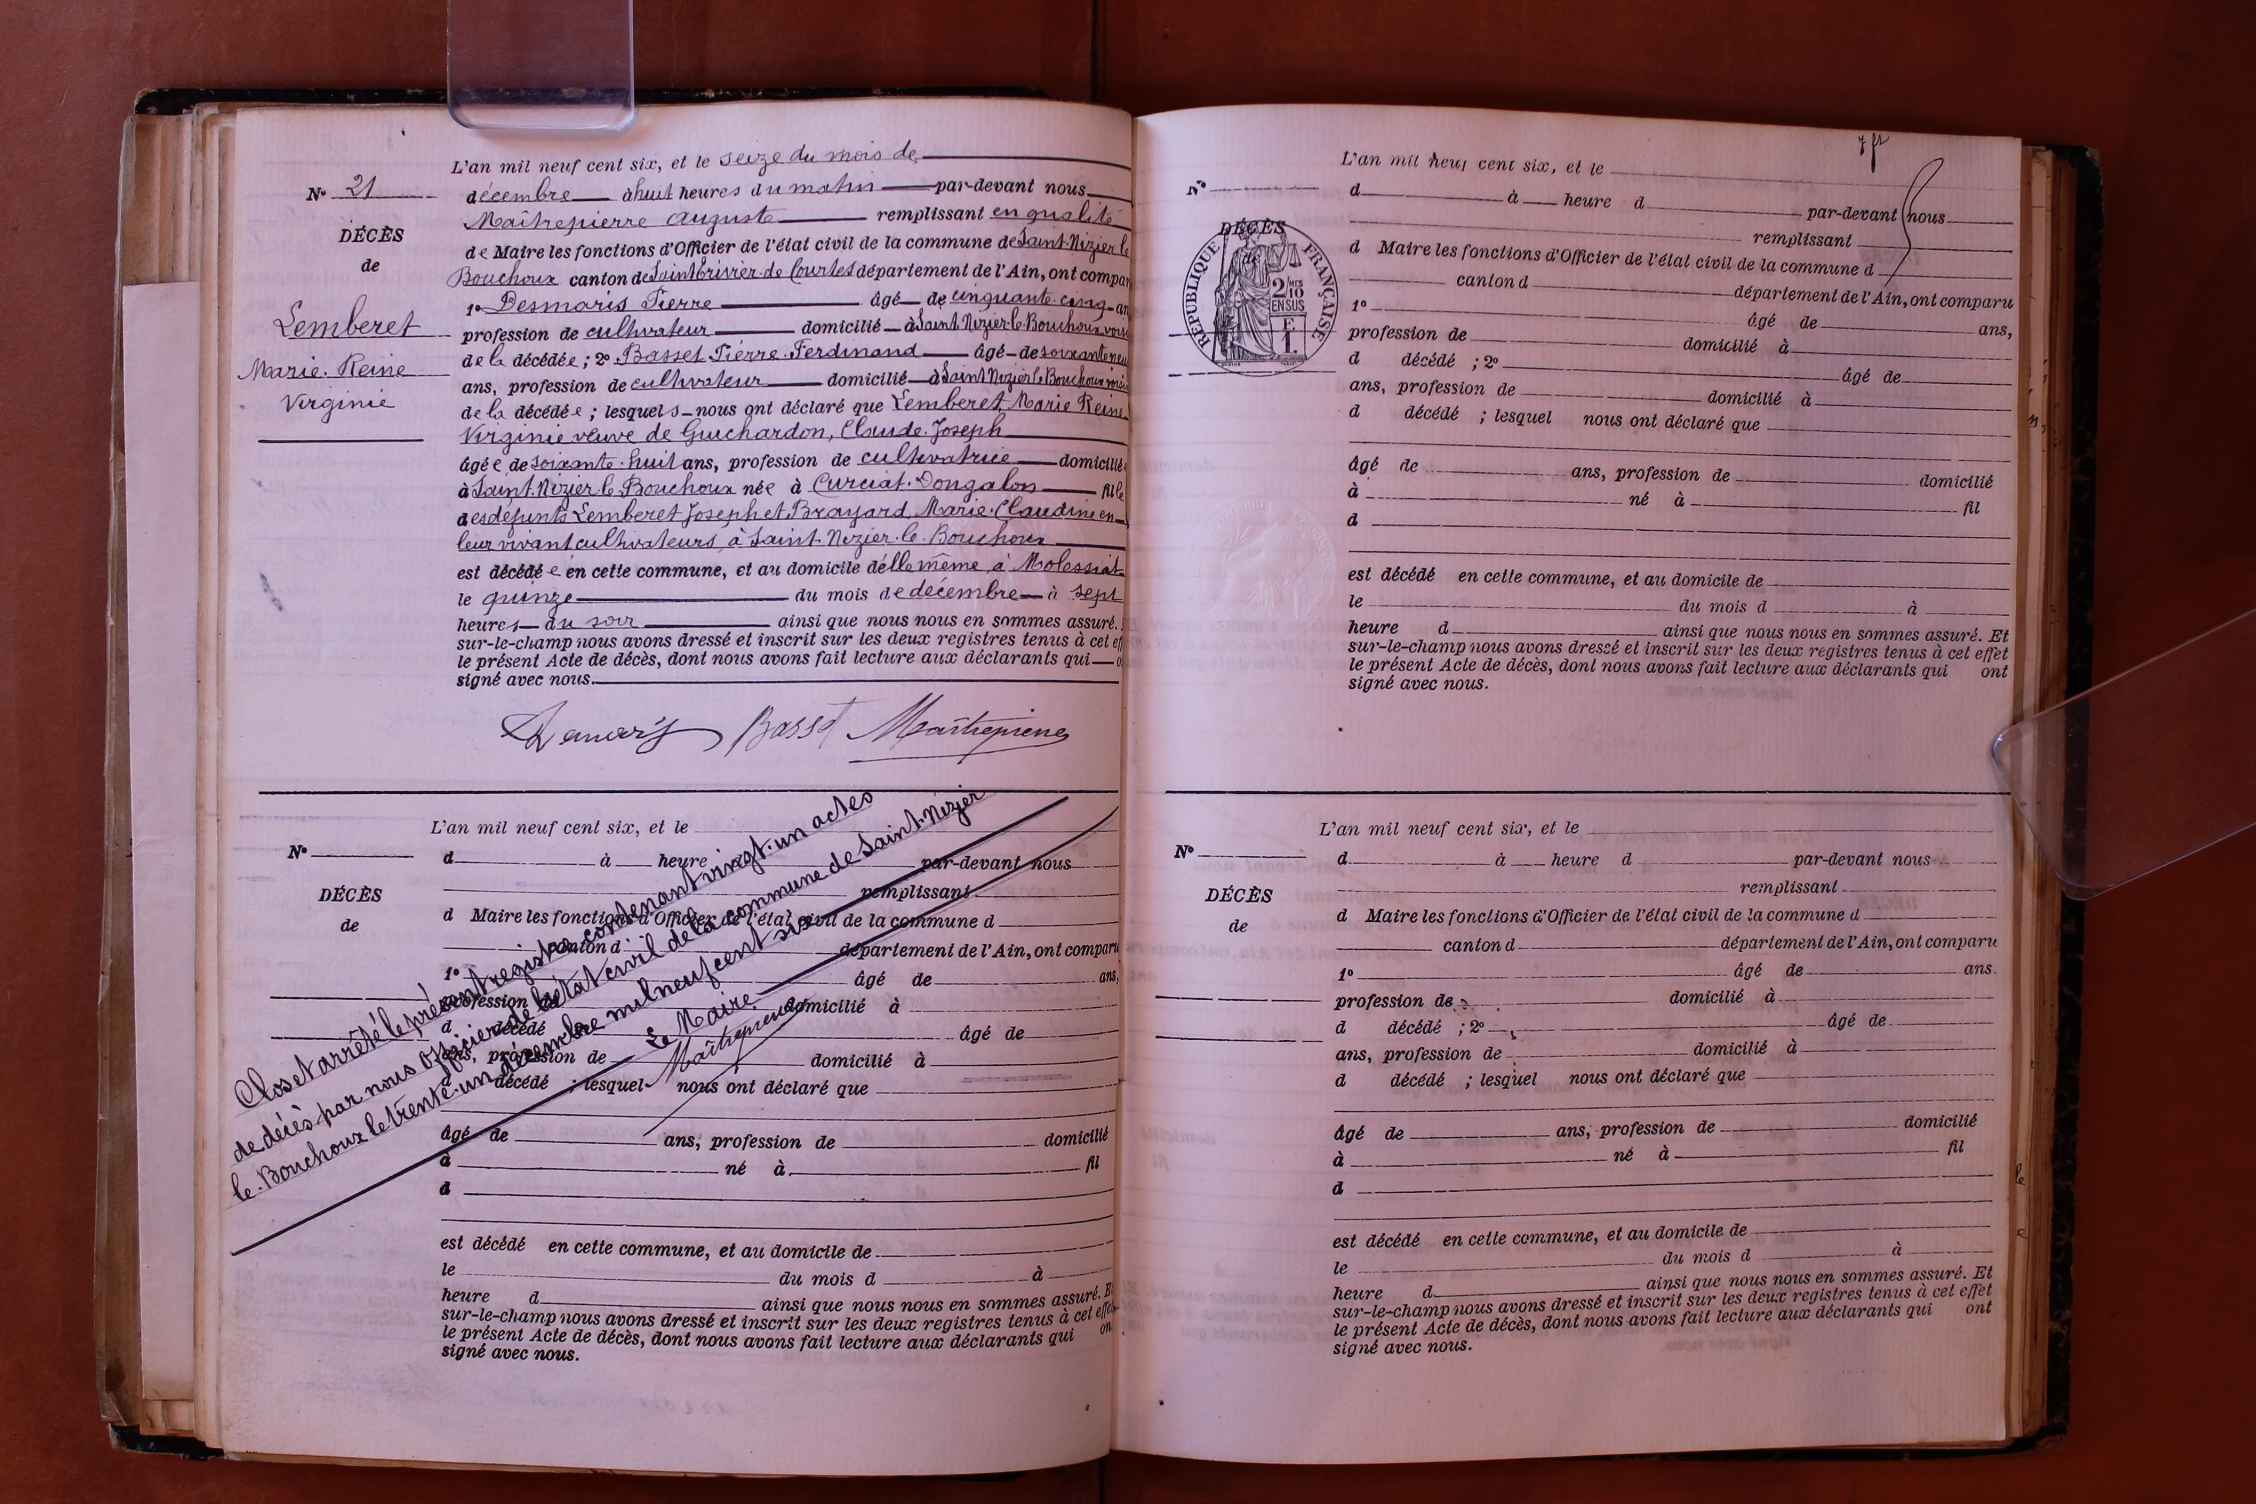 L'an mil neuf cent six, et le seize du mois de
N° 21
décembre à huit heures du matin par-devant nous
Maîtrepierre Auguste remplissant en qualité
DÉCÈS
de Maire les fonctions d'Officier de l'état civil de la commune de Saint-Nizier le
de
Bouchoux canton de Saint Trivier de Courtes département de l'Ain, ont compar
1° Desmaris Pierre âgé de cinquante-cinq an
Lemberet
profession de cultivateur domicilié à Saint-Nizier-le-Bouchoux vois
de la décédée ; 2° Basset Pierre Ferdinand âgé de soixante neu
Marie-Reine
ans, profession de cultivateur domicilié à Saint Nizier le Bouchoux
Virginie
de la décédée ; lesquels nous ont déclaré que Lemberet Marie Reine
Virginie veuve de Guichardon, Claude-Joseph
âgée de soixante-huit ans, profession de cultivatrice domicilié
à Saint-Nizier-le-Bouchoux née à Curciat-Dongalon fille
des défunts Lemberet Joseph et Brayard, Marie-Claudine en
leur vivant cultivateurs à Saint-Nizier-le-Bouchoux
est décédée en cette commune, et au domicile d'elle même à Molessiat
le quinze du mois de décembre à sept
heures du soir ainsi que nous nous en sommes assuré.
sur-le-champ nous avons dressé et inscrit sur les deux registres tenus à cet ef
le présent Acte de décès, dont nous avons fait lecture aux déclarants qui o
signé avec nous.
Demarís Basset Maîtrepierre
L'an mil neuf cent six, et le
N°
d à heure par-devant nous
remplissant
DÉCÈS
d Maire les fonctions d'Officier de l'état civil de la commune d
de
canton d département de l'Ain, ont comparu
1° âgé de ans,
profession de domicilié à
d décédé âgé de
ans, profession de domicilié à
d décédé ; lesquel nous ont déclaré que
âgé de ans, profession de domicilié
à né à fil
d
est décédé en cette commune, et au domicile de
le du mois d à
heure d ainsi que nous nous en sommes assuré. E
sur-le-champ nous avons dressé et inscrit sur les deux registres tenus à cet effet
le présent Acte de décès, dont nous avons fait lecture aux déclarants qui on
signé avec nous.
Clos et arrêté le présent registre contenant vingt-un actes
de décès par nous officier de l'état civil de la commune de Saint-Nizier
le-Bouchoux le trente-un décembre mil neuf cent six
Le Maire
Maîtrepierre
7 fr
L'an mil neuf cent six, et le
N°
d à heure d par-devant nous
remplissant
DÉCÈS
de
d Maire les fonctions d'Officier de l'état civil de la commune d
canton d département de l'Ain, ont comparu
RÉPUBLIQUE FRANÇAISE
2/10 MES
EN SUS
F
1.
1° âgé de ans,
profession de domicilié à
d décédé ; 2° âgé de
ans, profession de domicilié à
d décédé ; lesquel nous ont déclaré que
âgé de ans, profession de domicilié
à né à fil
d
est décédé en cette commune, et au domicile de
le du mois d à
heure d ainsi que nous nous en sommes assuré. Et
sur-le-champ nous avons dressé et inscrit sur les deux registres tenus à cet effet
le présent Acte de décès, dont nous avons fait lecture aux déclarants qui ont
signé avec nous.
L'an mil neuf cent six, et le
N°
d à heure d par-devant nous
remplissant
DÉCÈS
d Maire les fonctions d'Officier de l'état civil de la commune d
de
canton d département de l'Ain, ont comparu
1° âgé de ans.
profession de domicilié à
d décédé ; 2° âgé de
ans, profession de domicilié à
d décédé ; lesquel nous ont déclaré que
âgé de ans, profession de domicilié
à né à fil
d
est décédé en cette commune, et au domicile de
le du mois d à
heure d ainsi que nous nous en sommes assuré. Et
sur-le-champ nous avons dressé et inscrit sur les deux registres tenus à cet effet
le présent Acte de décès, dont nous avons fait lecture aux déclarants qui ont
signé avec nous.